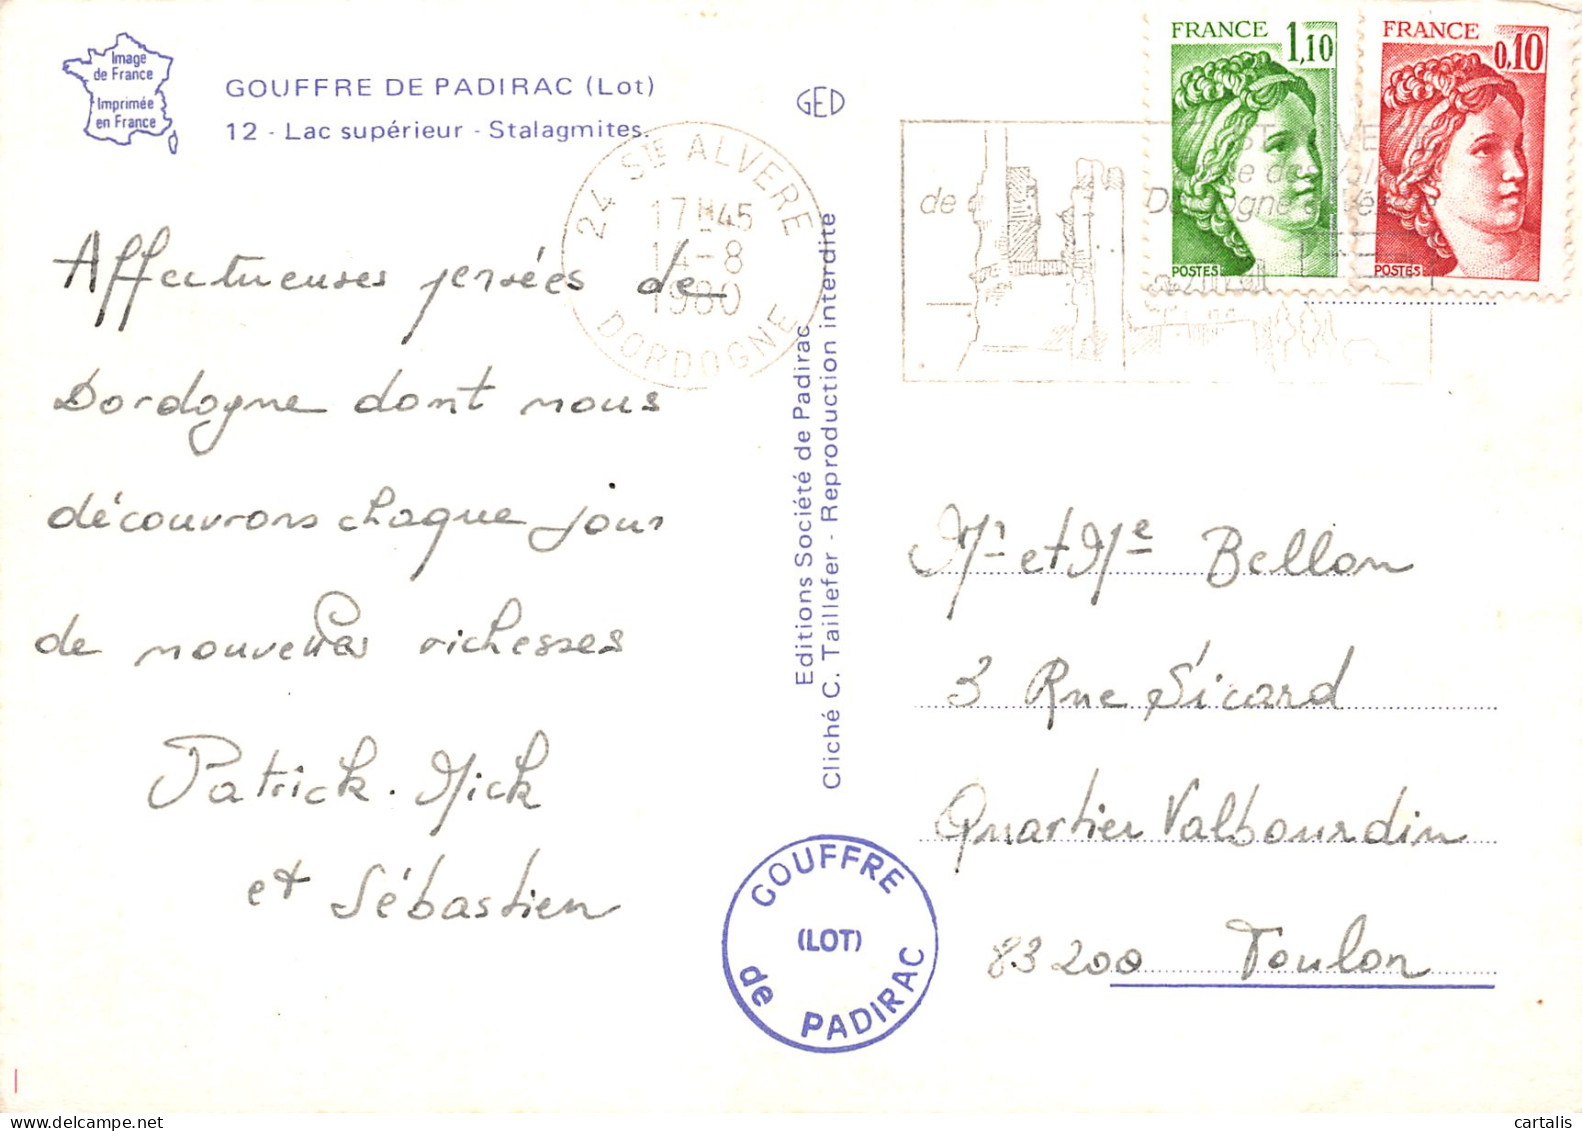 Image
de France
Imprimée
en France
GOUFFRE DE PADIRAC (Lot)
12 - Lac supérieur - Stalagmites.
GED
FRANCE
1,10
POSTES
FRANCE
0,10
POSTES
24 STE ALVERE
17H45
14-8
1980
DORDOGNE
de
Affectueuses pensées de
Dordogne dont nous
découvrons chaque jour
de nouvelles richesses
Patrick. Mick
et Sébastien
Editions Société de Padirac
Cliché C. Taillefer - Reproduction interdite
GOUFFRE
(LOT)
de PADIRAC
Mr et Me Bellon
3 Rue Sicard
Quartier Valbourdin
83200 Toulon
cartalis